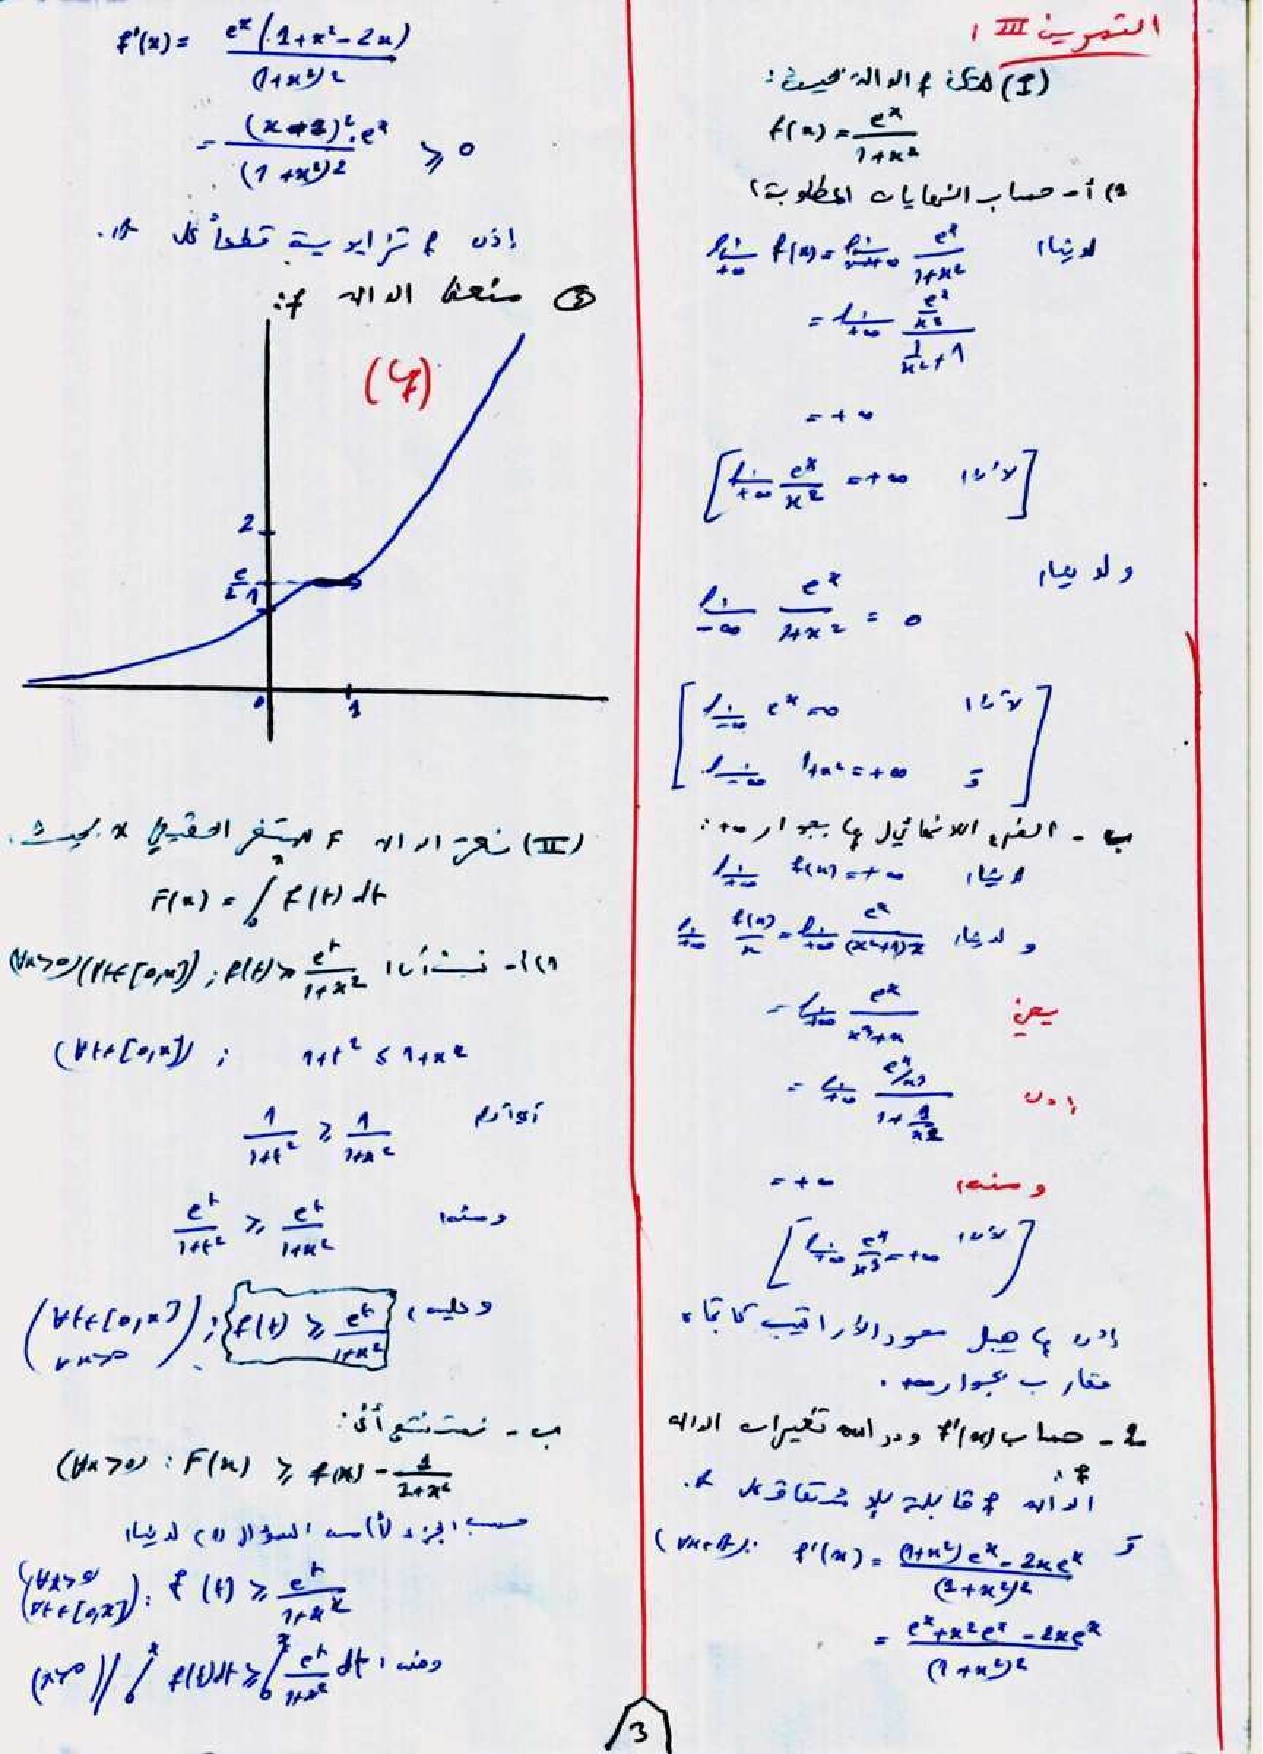 التمرين III :
(I) لتكن f الدالة بحيث :
f(x) = e^x / (1+x²)
1) أ - حساب النهايات المطلوبة :
لدينا : lim_{+∞} f(x) = lim_{x→+∞} e^x / (1+x²)
= lim_{+∞} (e^x/x²) / (1/x² + 1)
= +∞
[ lim_{+∞} e^x/x² = +∞ لأن : ]
ولدينا :
lim_{-∞} e^x / (1+x²) = 0
[ lim_{-∞} e^x = 0 لأن :
و lim_{-∞} 1+x² = +∞ ]
ب - الفرع اللانهائي لها بجوار +∞ :
لدينا : lim_{+∞} f(x) = +∞
ولدينا : lim_{+∞} f(x)/x = lim_{+∞} e^x / ((x²+1)x)
يعني = lim_{+∞} e^x / (x³+x)
إذن = lim_{+∞} (e^x/x³) / (1 + 1/x²)
ومنه : = +∞
[ lim_{+∞} e^x/x³ = +∞ لأن : ]
إذن يقبل محور الأراتيب كاتجاه
مقارب بجوار +∞ .
2 - حساب f'(x) ودراسة تغيرات الدالة
f :
الدالة f قابلة للإشتقاق على ℝ .
و (∀x∈ℝ) : f'(x) = ((1+x²)e^x - 2xe^x) / (1+x²)²
= (e^x + x²e^x - 2xe^x) / (1+x²)²
f'(x) = e^x(1+x²-2x) / (1+x²)²
= (x-1)².e^x / (1+x²)² ⩾ 0
إذن f تزايدية قطعا على ℝ .
③ منحنى الدالة f :
(𝒞f)
2
e/2
1
0
1
(II) نعتبر الدالة F للمتغير الحقيقي x بحيث .
F(x) = ∫₀^x f(t) dt
1) أ - نبين أن : (∀x>0)(∀t∈[0,x]) ; f(t) ⩾ e^t / (1+x²)
(∀t∈[0,x]) ; 1+t² ⩽ 1+x²
1/(1+t²) ⩾ 1/(1+x²)
ومنه : e^t/(1+t²) ⩾ e^t/(1+x²)
وعليه : (∀t∈[0,x] ∀x>0) ; f(t) ⩾ e^t/(1+x²)
ب - نستنتج أن :
(∀x>0) : F(x) ⩾ f(x) - 1/(1+x²)
حسب الجزء أ من السؤال (1 لدينا :
(∀x>0 ∀t∈[0,x]) : f(t) ⩾ e^t/(1+x²)
ومنه : (x>0) // ∫₀^x f(t)dt ⩾ ∫₀^x e^t/(1+x²) dt
3